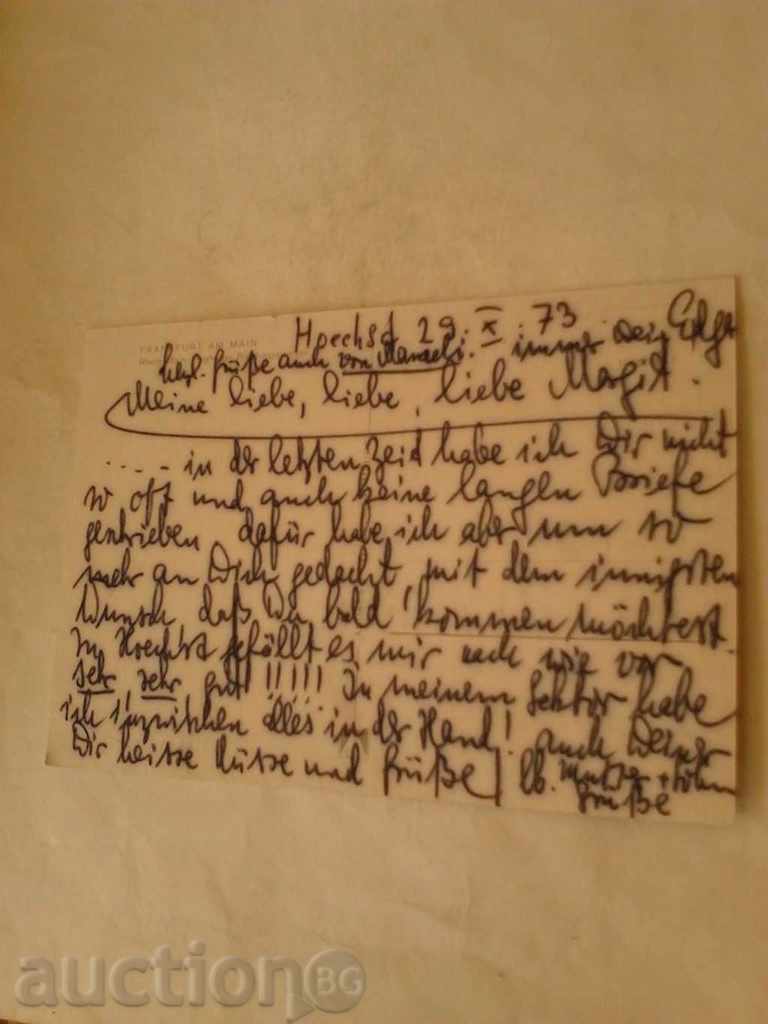 FRANKFURT AM MAIN
Hoechst 29. X. 73
herzl. Grüße auch von immer Dein Edgar
Meine liebe, liebe, liebe Margit.
..... in der letzten Zeit habe ich Dir nicht
so oft und auch keine langen Briefe
geschrieben dafür habe ich aber um so
mehr an Dich gedacht, mit dem innigsten
Wunsch daß Du bald kommen möchtest.
In Hoechst gefällt es mir nach wie vor
sehr, sehr gut!!!!! In meinem Sektor habe
ich inzwischen alles in der Hand! auch Deiner
Dir heisse Küsse und Grüße lb. Mutter +
Grüße
auctionBG